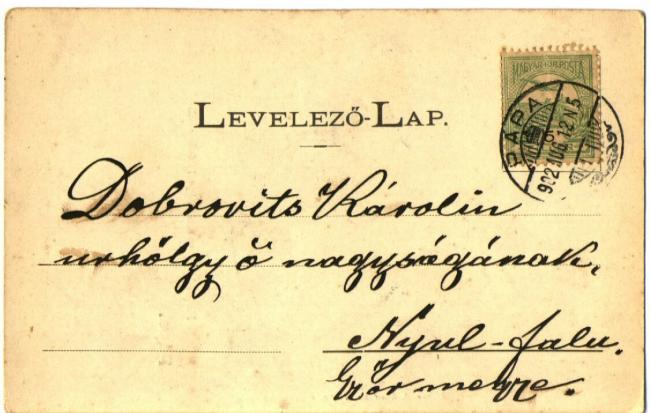 MAGYAR KIR. POSTA
LEVELEZŐ-LAP.
PÁPA
902
Dobrovits Károlin
urhölgy ő nagyságának.
Nyul-falu.
Győr megye.